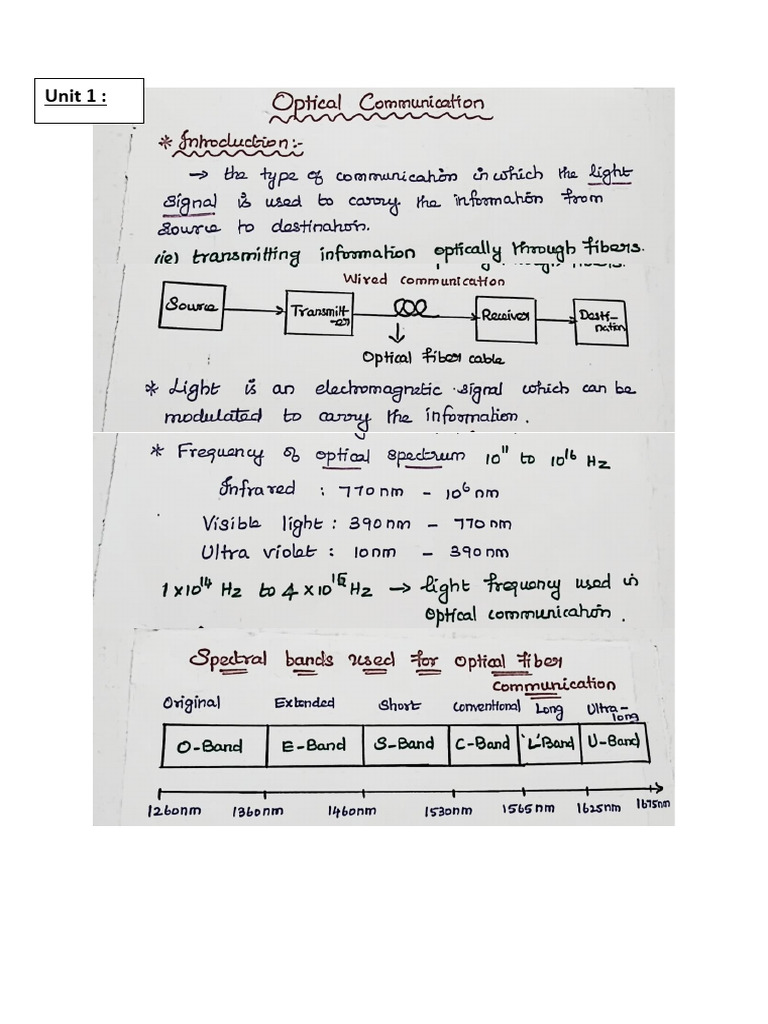 Unit 1 :
Optical Communication
* Introduction:-
→ the type of communication in which the light
signal is used to carry the information from
source to destination.
(ie) transmitting information optically through fibers.
Wired communication
Source
Transmitt-
er
Receiver
Desti-
nation
Optical fiber cable
* Light is an electromagnetic signal which can be
modulated to carry the information.
* Frequency of optical spectrum 10¹¹ to 10¹⁶ Hz
Infrared : 770nm - 10⁶nm
Visible light : 390nm - 770nm
Ultra violet : 10nm - 390nm
1×10¹⁴ Hz to 4×10 Hz → light frequency used in
optical communication.
Spectral bands used for optical fiber
communication
Original Extended Short Conventional Long Ultra-
long
O-Band E-Band S-Band C-Band 'L' Band U-Band
1260nm 1360nm 1460nm 1530nm 1565nm 1625nm 1675nm